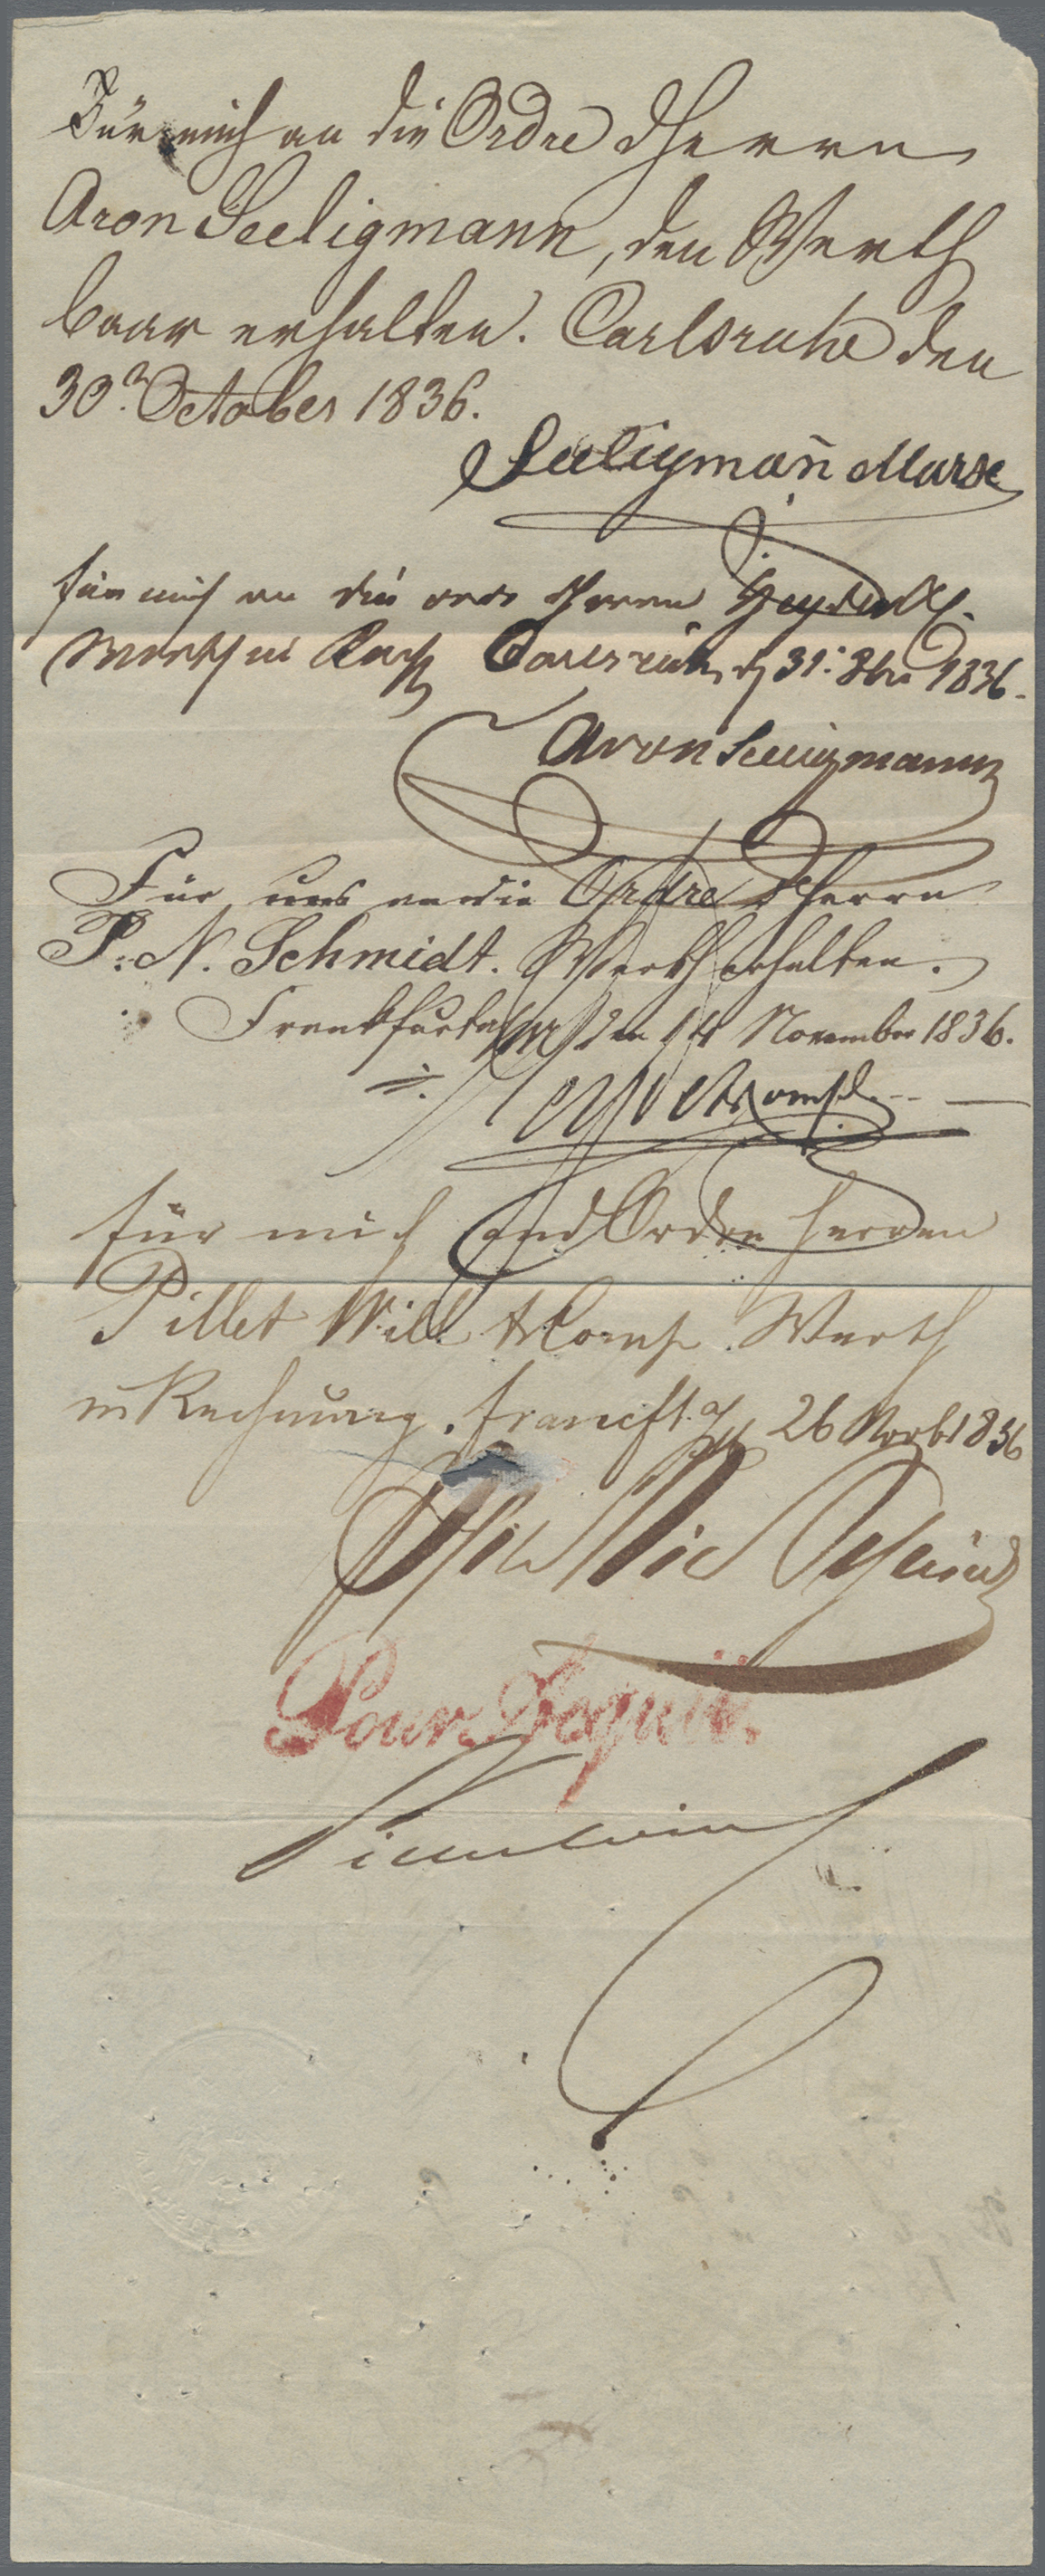 Für mich an die Ordre d Herrn
Aron Seeligmann, den Werth
baar erhalten. Carlsruhe den
30n October 1836.
Seeligmañ Marx
für mich an die ordr Herren
Werth in Carlsruh d 31: 8br 1836.
Aron Seeligmann
Für uns an die Ordre d Herrn
P. N. Schmidt. Werth erhalten.
Frankfurt a/M den 14 November 1836.
für mich and Ordre Herren
Pillet Will & Comp. Werth
in Rechnung. Francft. a/M 26 Novbr 1836
Phil Nic Schmidt
Pour Acquit.
Pillet Will